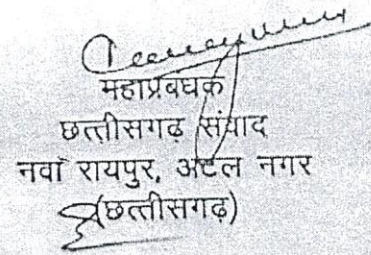 महाप्रबंधक
छत्तीसगढ़ संवाद
नवा रायपुर, अटल नगर
(छत्तीसगढ़)